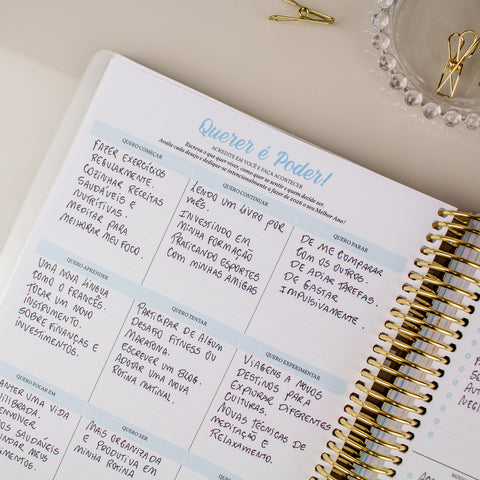 Querer é Poder!
ACREDITE EM VOCÊ E FAÇA ACONTECER
Escreva o que quer viver, como quer se sentir e quem decide ser.
Avalie cada desejo e dedique-se intencionalmente a fazer de 2026 o seu Melhor Ano!
QUERO COMEÇAR
FAZER EXERCÍCIOS
REGULARMENTE.
COZINHAR RECEITAS
SAUDÁVEIS E
NUTRITIVAS.
MEDITAR PARA
MELHORAR MEU FOCO.
QUERO CONTINUAR
LENDO UM LIVRO POR
MÊS.
INVESTINDO EM
MINHA FORMAÇÃO
PRATICANDO ESPORTES
COM MINHAS AMIGAS
QUERO PARAR
DE ME COMPARAR
COM OS OUTROS.
DE ADIAR TAREFAS.
DE GASTAR
IMPULSIVAMENTE.
QUERO APRENDER
UMA NOVA LÍNGUA
COMO O FRANCÊS.
TOCAR UM NOVO
INSTRUMENTO.
SOBRE FINANÇAS E
INVESTIMENTOS.
QUERO TENTAR
PARTICIPAR DE ALGUM
DESAFIO FITNESS OU
MARATONA.
ESCREVER UM BLOG.
ADOTAR UMA NOVA
ROTINA MATINAL.
QUERO EXPERIMENTAR
VIAGENS A NOVOS
DESTINOS PARA
EXPLORAR DIFERENTES
CULTURAS.
NOVAS TÉCNICAS DE
MEDITAÇÃO E
RELAXAMENTO.
QUERO FOCAR EM
ANTER UMA VIDA
ILIBRADA.
ENVOLVER
OS SAUDÁVEIS
ONDAR MEUS
MENTOS.
QUERO SER
MAIS ORGANIZADA
E PRODUTIVA EM
MINHA ROTINA